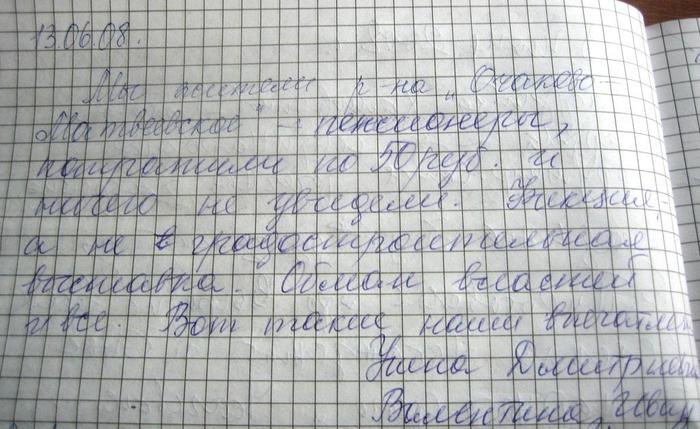 13.06.08.
Мы жители р-на "Очаково-
Матвеевское" - пенсионеры,
потратили по 50 руб. и
ничего не увидели. Фикция,
а не в градостроительная
выставка. Обман властей
и все. Вот такие наши впечатлен
Дмитриевна
Валентина Иван